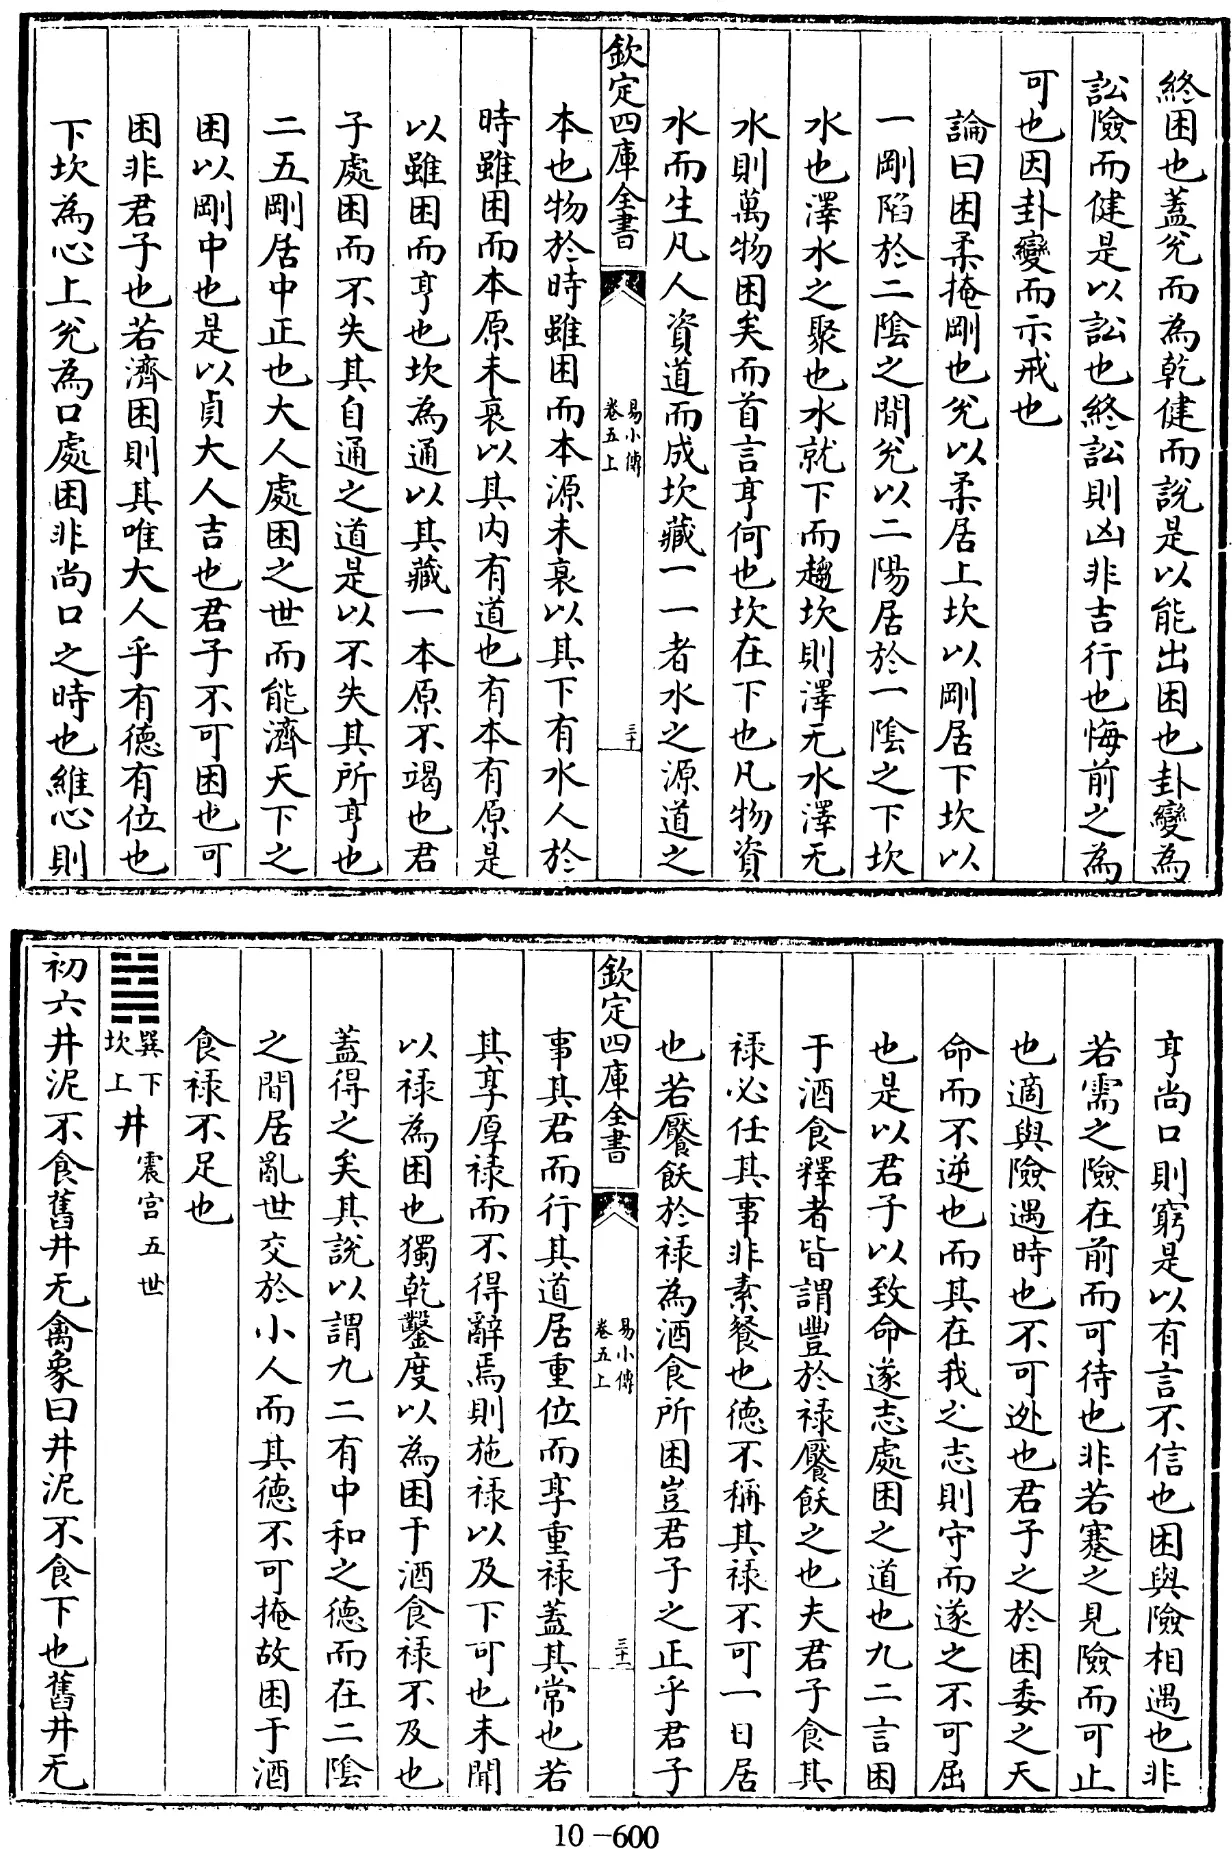 終困也蓋兊而為乾健而說是以能出困也卦變為
訟險而健是以訟也終訟則凶非吉行也悔前之為
可也因卦變而示戒也
論曰困柔掩剛也兊以柔居上坎以剛居下坎以
一剛陷於二隂之間兊以二陽居於一隂之下坎
水也澤水之聚也水就下而趨坎則澤无水澤无
水則萬物困矣而首言亨何也坎在下也凡物資
水而生凡人資道而成坎藏一一者水之源道之
欽定四庫全書
易小傳
卷五上
三十
本也物於時雖困而本源未衰以其下有水人於
時雖困而本原未衰以其内有道也有本有原是
以雖困而亨也坎為通以其藏一本原不竭也君
子處困而不失其自通之道是以不失其所亨也
二五剛居中正也大人處困之世而能濟天下之
困以剛中也是以貞大人吉也君子不可困也可
困非君子也若濟困則其唯大人乎有德有位也
下坎為心上兊為口處困非尚口之時也維心則
亨尚口則窮是以有言不信也困與險相遇也非
若需之險在前而可待也非若蹇之見險而可止
也適與險遇時也不可逃也君子之於困委之天
命而不逆也而其在我之志則守而遂之不可屈
也是以君子以致命遂志處困之道也九二言困
于酒食釋者皆謂豐於禄饜飫之也夫君子食其
禄必任其事非素餐也德不稱其禄不可一日居
也若饜飫於禄為酒食所困豈君子之正乎君子
欽定四庫全書
易小傳
卷五上
三十一
事其君而行其道居重位而享重禄蓋其常也若
其享厚禄而不得辭焉則施禄以及下可也未聞
以禄為困也獨乾鑿度以為困于酒食禄不及也
蓋得之矣其說以謂九二有中和之德而在二隂
之間居亂世交於小人而其德不可掩故困于酒
食禄不足也
巽下
坎上
井
震宫五世
初六井泥不食舊井无禽象曰井泥不食下也舊井无
10-600